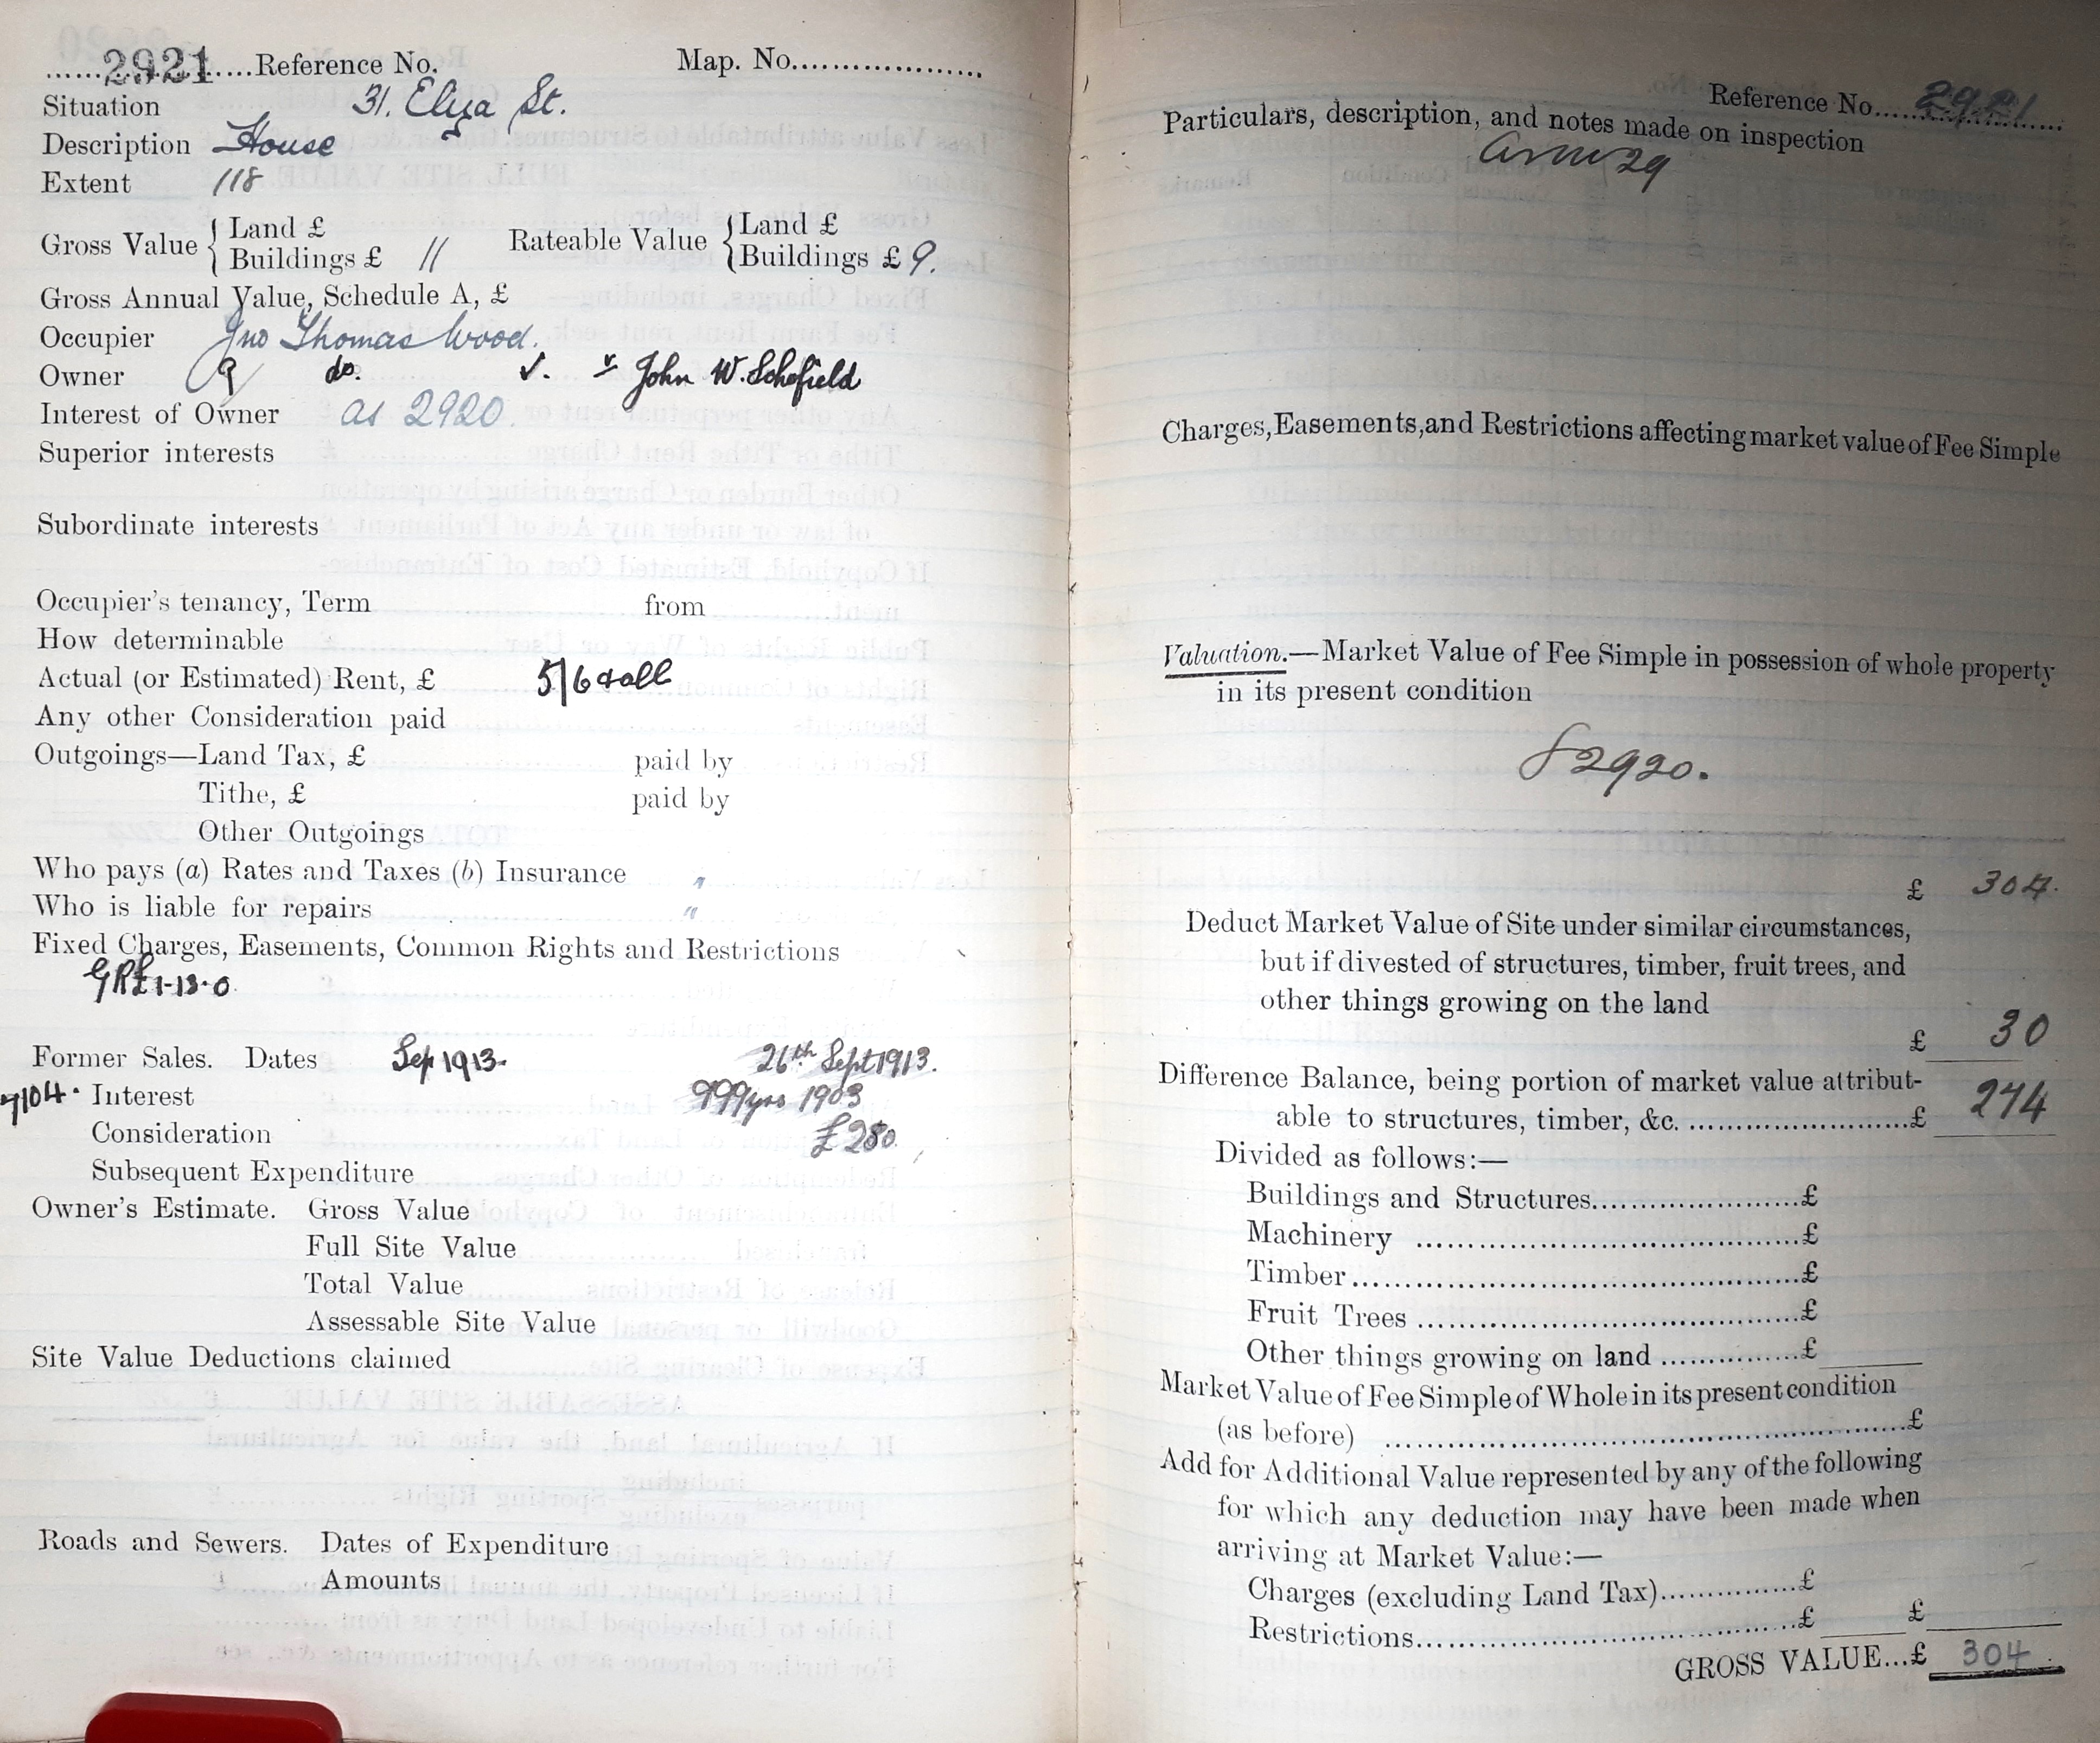 2921 Reference No. Map. No.
Situation 31. Eliza St.
Description House
Extent 118
Gross Value { Land £ Rateable Value { Land £
Buildings £ 11 Buildings £ 9.
Gross Annual Value, Schedule A, £
Occupier Jno Thomas Wood.
Owner do. v. John W. Schofield
Interest of Owner as 2920.
Superior interests
Subordinate interests
Occupier's tenancy, Term from
How determinable
Actual (or Estimated) Rent, £ 5/6 & all
Any other Consideration paid
Outgoings—Land Tax, £ paid by
Tithe, £ paid by
Other Outgoings
Who pays (a) Rates and Taxes (b) Insurance "
Who is liable for repairs "
Fixed Charges, Easements, Common Rights and Restrictions
GR £1-13-0
Former Sales. Dates Sep 1913. 26th Sept 1913.
7104. Interest 999 yrs 1903
Consideration £280.
Subsequent Expenditure
Owner's Estimate. Gross Value
Full Site Value
Total Value
Assessable Site Value
Site Value Deductions claimed
Roads and Sewers. Dates of Expenditure
Amounts
Reference No. 2921
Particulars, description, and notes made on inspection
29
Charges, Easements, and Restrictions affecting market value of Fee Simple
Valuation.—Market Value of Fee Simple in possession of whole property
in its present condition
2920.
£ 304.
Deduct Market Value of Site under similar circumstances,
but if divested of structures, timber, fruit trees, and
other things growing on the land
£ 30
Difference Balance, being portion of market value attribut-
able to structures, timber, &c. £ 274
Divided as follows:—
Buildings and Structures £
Machinery £
Timber £
Fruit Trees £
Other things growing on land £
Market Value of Fee Simple of Whole in its present condition
(as before) £
Add for Additional Value represented by any of the following
for which any deduction may have been made when
arriving at Market Value:—
Charges (excluding Land Tax) £
Restrictions £ £
GROSS VALUE...£ 304